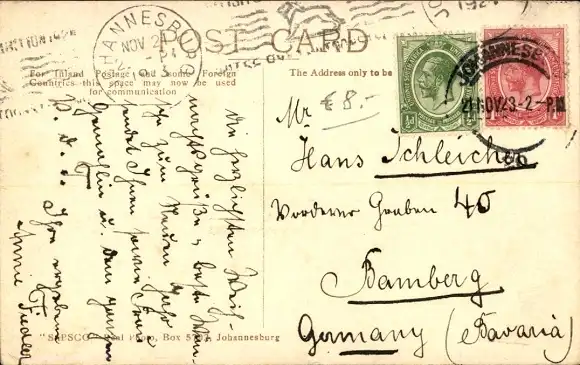 JOHANNESBURG
NOV 2
POST CARD
For Inland Postage and some Foreign
Countries this space may now be used
for communication
The Address only to be
€ 8.-
JOHANNESB
21 NOV 23-2-PM
Mr
Hans Schleicher
Vorderer Graben 45
Bamberg
Germany (Bavaria)
Die herzlichsten Weih-
nachtsgrüße u. beste Wün-
sche zum Neuen Jahr
sendet Ihnen sowie Frau
Gemahlin u. dem ganzen
Ihre ergebene
Annie Fiedler
"SAPSCO" Real Photo, Box 5792, Johannesburg